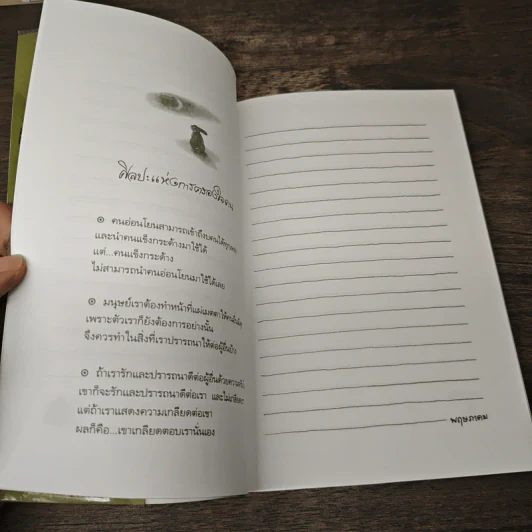 ศิลปะแห่งการครองใจคน
๏ คนอ่อนโยนสามารถเข้าถึงคนได้ทุกคน
และนำคนแข็งกระด้างมาใช้ได้
แต่...คนแข็งกระด้าง
ไม่สามารถนำคนอ่อนโยนมาใช้ได้เลย
๏ มนุษย์เราต้องทำหน้าที่แผ่เมตตาให้
เพราะตัวเราก็ยังต้องการอย่างนั้น
จึงควรทำในสิ่งที่เราปรารถนาให้ต่อผู้อื่นบ้าง
๏ ถ้าเรารักและปรารถนาดีต่อผู้อื่นด้วย
เขาก็จะรักและปรารถนาดีต่อเรา และไม่
แต่ถ้าเราแสดงความเกลียดต่อเขา
ผลก็คือ...เขาเกลียดตอบเรานั่นเอง
พฤษภาคม